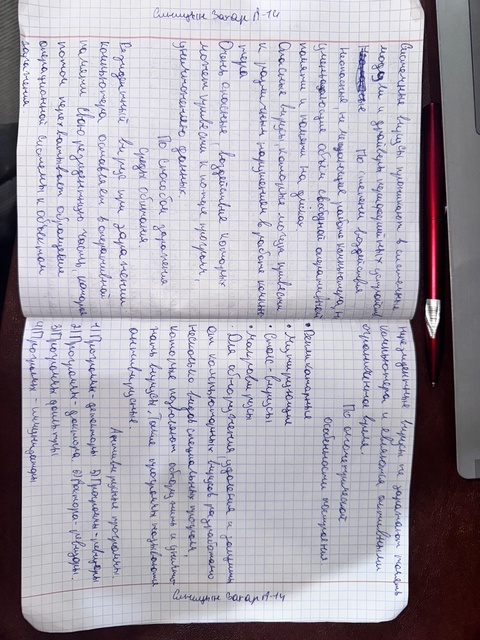 Синицын Захар А-14
Системные вирусы проникают в системные
модули и драйверы периферийных устройств
По степени воздействия
Неопасные, не мешающие работе компьютера, но
уменьшающие объем свободной оперативной
памяти и памяти на дисках
Опасные вирусы, которые могут привести
к различным нарушениям в работе компью-
тера
Очень опасные, воздействие которых
может привести к потере программ,
уничтожению данных
По способам заражения
среды обитания
Резидентный вирус при заражении
компьютера оставляет в оперативной
памяти свою резидентную часть, которая
потом перехватывает обращение
операционной системы к объектам
заражения
Нерезидентные вирусы не заражают память
компьютера и являются активными
ограниченное время.
По алгоритмической
особенности построения
• Репликаторные
• Мутирующие
• Стелс-вирусы
• Макровирусы
Для обнаружения, удаления и защиты
от компьютерных вирусов разработано
несколько видов специальных программ,
которые позволяют обнаружить и уничто-
жать вирусы. Такие программы называются
антивирусные.
Антивирусные программы.
1) Программы-детекторы 5) Программы-ревизоры
2) Программы-доктора 6) Доктора-ревизоры.
3) Программы-фильтры
4) Программы-иммунизаторы
Синицын Захар А-14